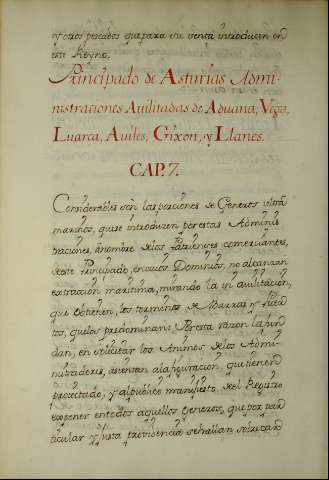 y otros pescados que para su venta introducen en
este Reyno.
Principado de Asturias Admi-
nistraciones Avilitadas de Aduana, Vega,
Luarca, Aviles, Gixon, y Llanes.
CAP. 7.
Considerables son las porciones de Generos ultra
marinos, que se introducen por estas Adminis
traciones, á nombre de los Patricios comerciantes,
de este Principado, en cuios Dominios, no alcanzan
extraccion maritima, mirando la in avilitacion,
que obtienen, los terminos de Barras y Puer
tos, que los predominan. Por esta razon la fun
dan, en explicitar los Animos de los Admi-
nistradores, asientan la figuracion, que tienen
proiectada, y al publico manifiesto del Registro
exponer en todos aquellos Generos, que por par
ticular y justa providencia se hallan, sobre card